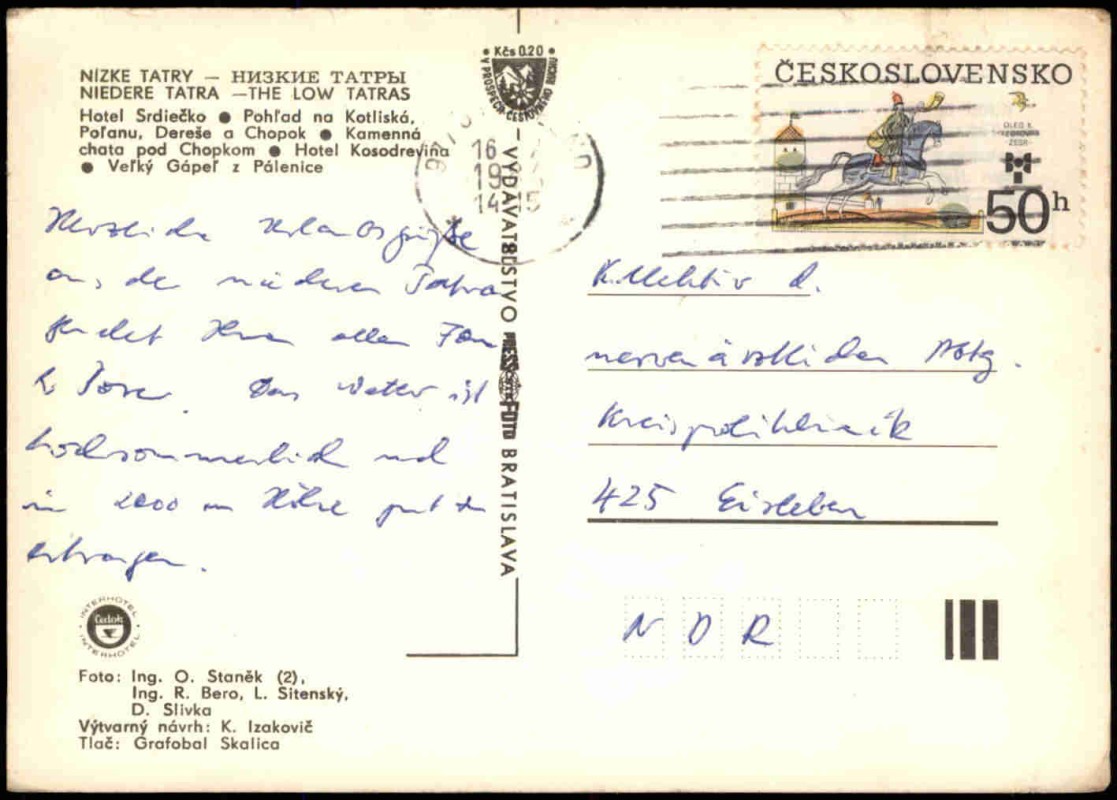 NÍZKE TATRY — НИЗКИЕ ТАТРЫ
NIEDERE TATRA —THE LOW TATRAS
Hotel Srdiečko ● Pohľad na Kotliská,
Poľanu, Dereše a Chopok ● Kamenná
chata pod Chopkom ● Hotel Kosodrevina
● Veľký Gápeľ z Pálenice
Herzliche Urlaubsgrüße
aus der niederen Tatra
sendet Ihnen allen Fam
Das Wetter ist
hochsommerlich und
in 2000 m Höhe gut zu
ertragen.
INTERHOTEL
Čedok
INTERHOTEL
Foto: Ing. O. Staněk (2),
Ing. R. Bero, L. Sitenský,
D. Slivka
Výtvarný návrh: K. Izakovič
Tlač: Grafobal Skalica
Kčs 0.20
V PROSPECH ČESTOVNÉHO RUCHU
VYDAVATEĽSTVO PRESSFOTO BRATISLAVA
16
14
ČESKOSLOVENSKO
50h
Kollektiv d.
nervenärztlichen Abtg.
Kreispoliklinik
425 Eisleben
N D R